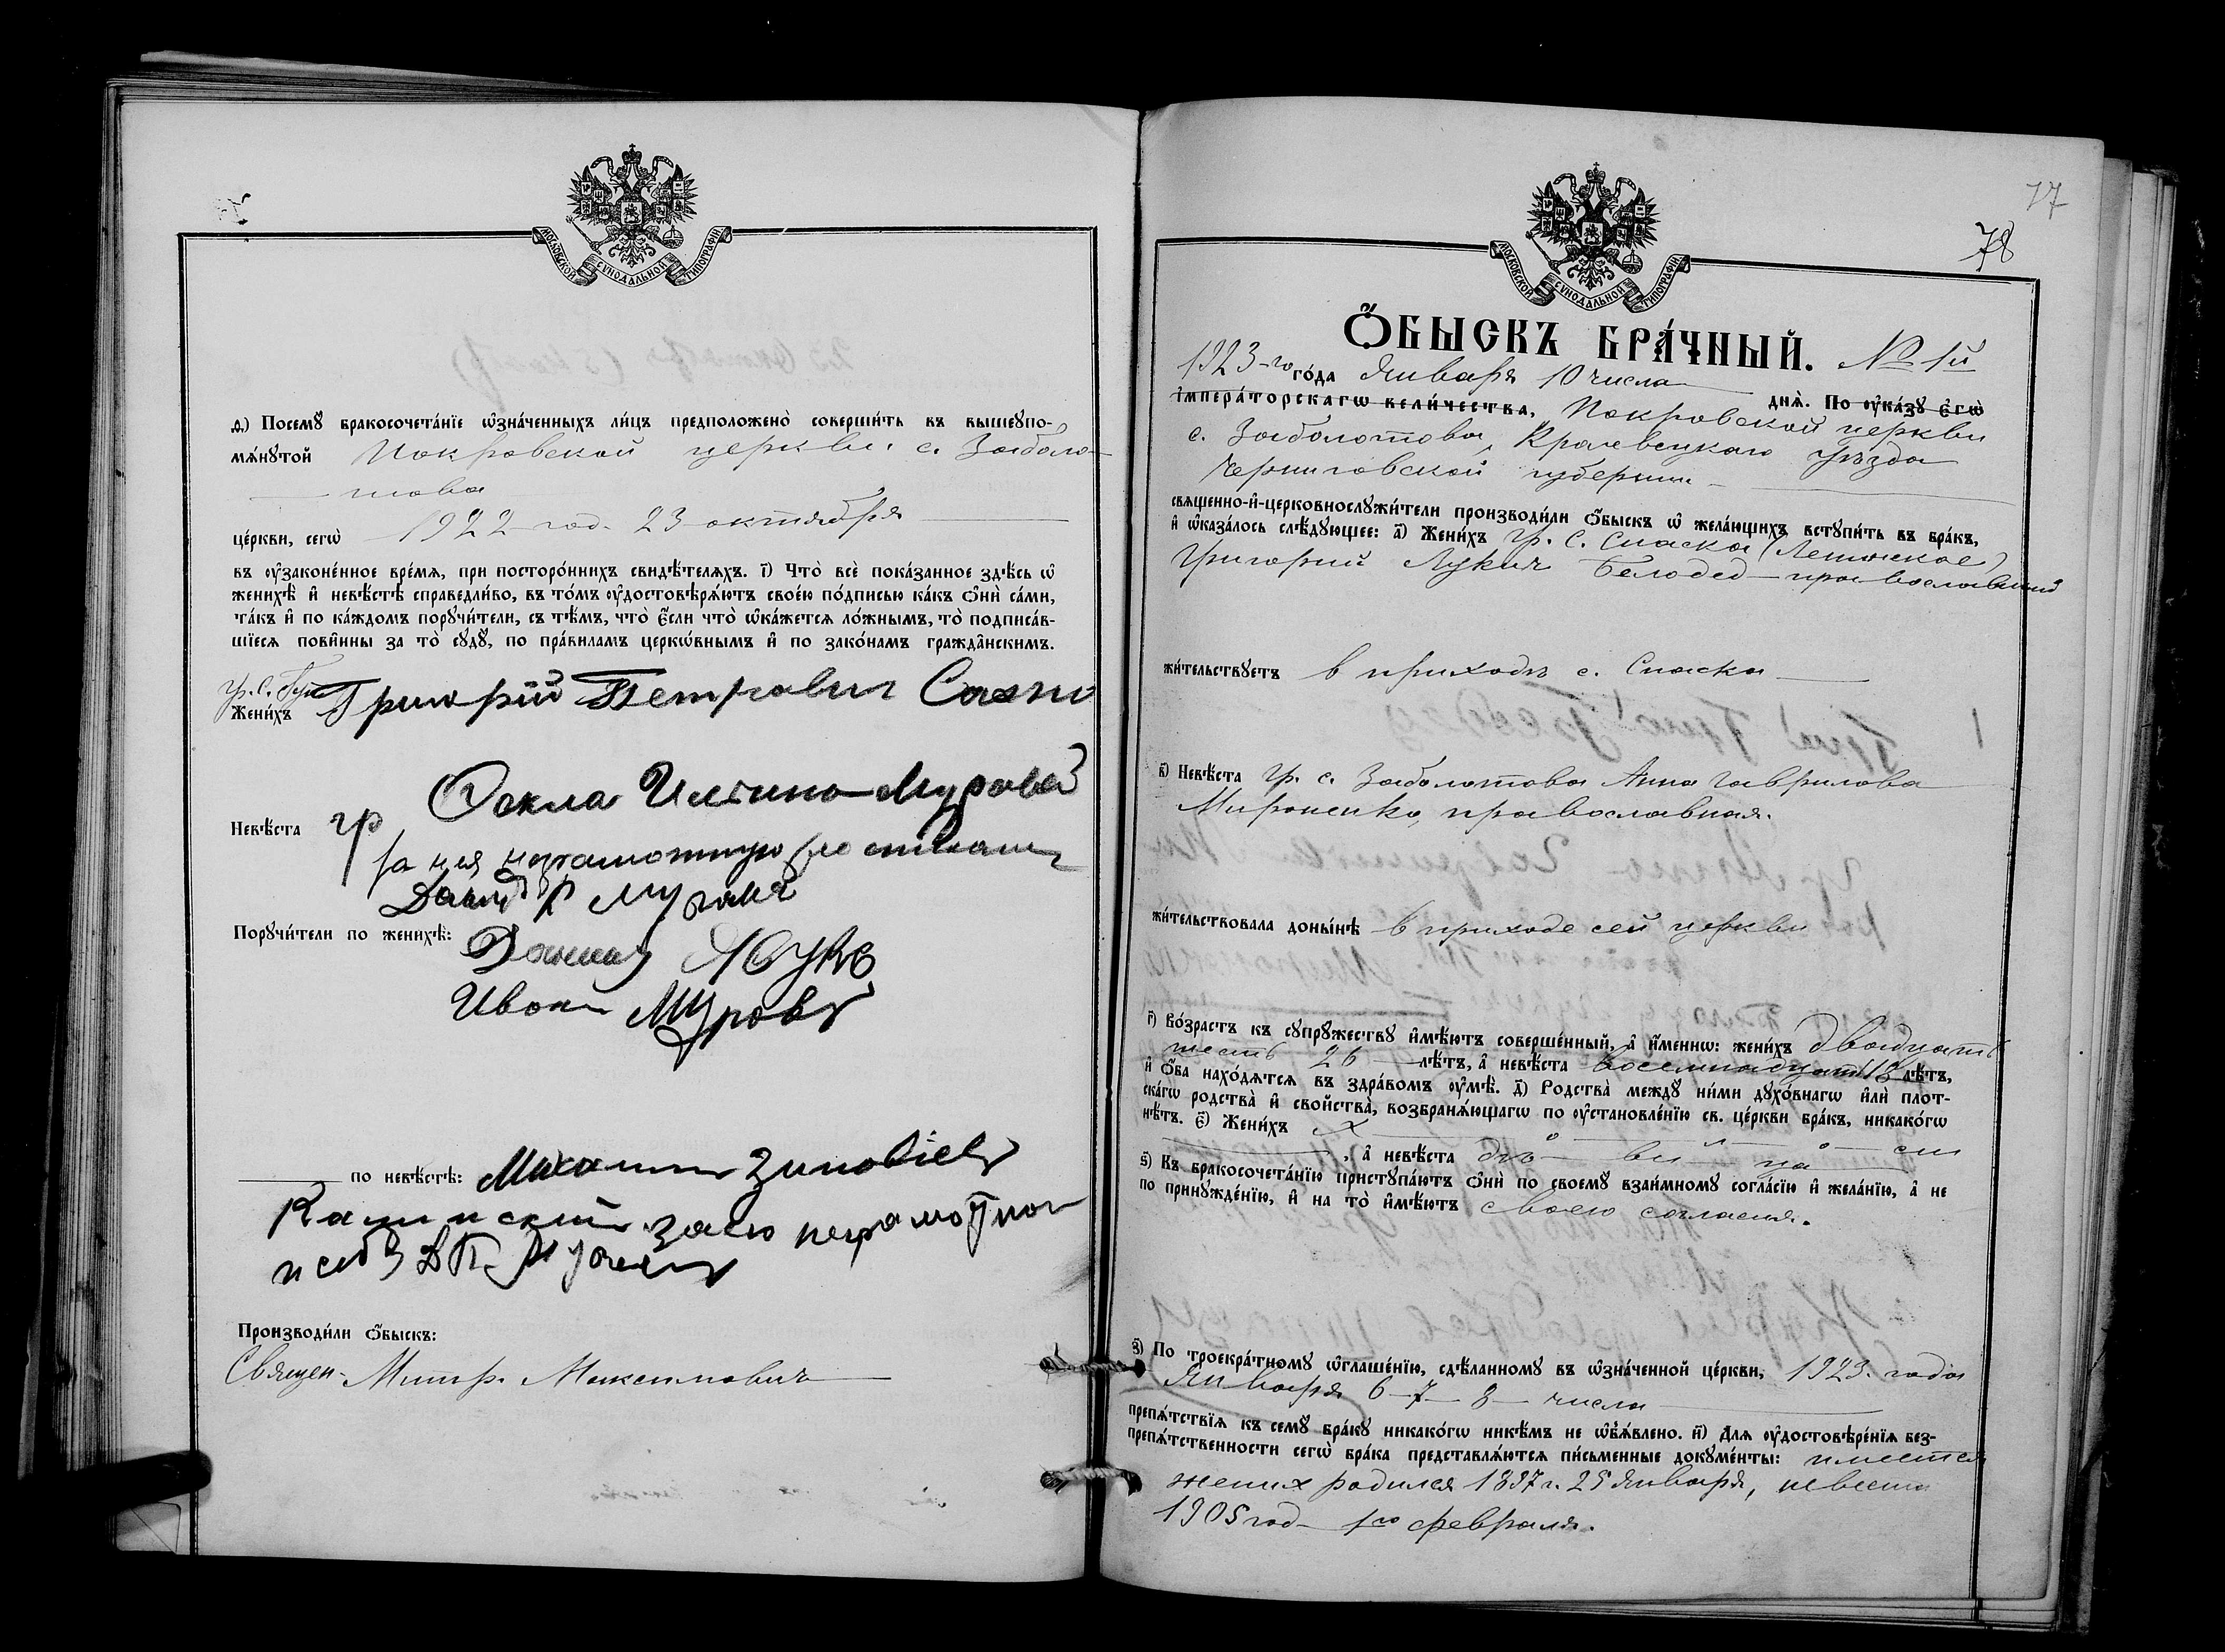 МОСКОВСКОЙ СѴНОДАЛЬНОЙ ТИПОГРАФІИ
д҃) Посемꙋ бракосочета́нїе ѡ҆зна́ченныхъ ли́цъ предположено̀ соверши́ть въ вышеꙋпо-
мѧ́нꙋтой Покровской церкви с. Заболо-
това
це́ркви, сегѡ̀ 1922 год. 23 октября
въ ᲂу҆зако́ненное вре́мѧ, при посторо́ннихъ свидѣ́телѧхъ. і҃) Что̀ всѐ пока́занное здѣ́сь ѡ҆
женихѣ̀ и҆ невѣ́стѣ справедли́во, въ то́мъ ᲂу҆достовѣрѧ́ютъ свое́ю по́дписью ка́къ ѻ҆нѝ са́ми,
та́къ и҆ по ка́ждомъ порꙋчи́тели, съ тѣ́мъ, что̀ є҆́сли что̀ ѡ҆ка́жетсѧ ло́жнымъ, то̀ подписа́в-
шїесѧ пови́нны за то̀ сꙋдꙋ̀, по пра́виламъ церко́внымъ и҆ по зако́намъ гражда́нскимъ.
гр. с.
Жени́хъ Григорій Петрович Сахно
Невѣ́ста гр Фекла
за нея неграмотную
Порꙋчи́тели по женихѣ̀:
Иван Муровъ
по невѣ́стѣ: Михаил Зиновіев
Производи́ли ѻ҆́быскъ:
Священ. Митр. Максимович
77
78
МОСКОВСКОЙ СѴНОДАЛЬНОЙ ТИПОГРАФІИ
Ѻ҆́БЫСКЪ БРА́ЧНЫЙ. № 1й
1923-го го́да Января 10 числа днѧ̀. По ᲂу҆ка́зꙋ є҆гѡ̀
і҆мпера́торскагѡ вели́чества, Покровской церкви
с. Заболотова, Кролевецкаго уѣзда
Черниговской губернии
свѧще́нно-и҆-церковнослꙋжи́тели производи́ли ѻ҆́быскъ ѡ҆ жела́ющихъ встꙋпи́ть въ бра́къ,
и҆ ѡ҆каза́лось слѣ́дꙋющее: а҃) Жени́хъ гр. с. Спаска (Ленинское)
Григорий Лукич Белодед православный
жи́тельствꙋетъ в приходѣ с. Спаска
в҃) Невѣ́ста гр. с. Заболотова Анна Гаврилова
Мироненко, православная.
жи́тельствовала доны́нѣ в приходе сей церкви
г҃) Во́зрастъ къ сꙋпрꙋ́жествꙋ и҆мѣ́ютъ соверше́нный, а҆ и҆́меннѡ: жени́хъ двадцать
шесть 26 лѣ́тъ, а҆ невѣ́ста восемнадцать 18 лѣ́тъ,
и҆ ѻ҆́ба нахо́дѧтсѧ въ здра́вомъ ᲂу҆мѣ̀. д҃) Родства̀ междꙋ̀ ни́ми дꙋхо́внагѡ и҆лѝ плот-
ска́гѡ родства̀ и҆ свойства̀, возбранѧ́ющагѡ по ᲂу҆становле́нїю св. це́ркви бра́къ, никако́гѡ
нѣ́тъ. є҃) Жени́хъ х о л о с т
, а҆ невѣ́ста дѣ ви ца
ѕ҃) Къ бракосочета́нїю пристꙋпа́ютъ ѻ҆нѝ по своемꙋ̀ взаи́мномꙋ согла́сїю и҆ жела́нїю, а҆ не
по принꙋжде́нїю, и҆ на то̀ и҆мѣ́ютъ своею согласия.
з҃) По троекра́тномꙋ ѡ҆глаше́нїю, сдѣ́ланномꙋ въ ѡ҆зна́ченной це́ркви, 1923 года
Января 6-7-8 числа
препѧ́тствїѧ къ семꙋ̀ бра́кꙋ никако́гѡ никѣ́мъ не ѡ҆б̾ѧ́влено. и҃) Длѧ ᲂу҆достовѣре́нїѧ без-
препѧ́тственности сегѡ̀ бра́ка представлѧ́ютсѧ пи́сьменные докꙋме́нты: имеется
жених родился 1897 г. 25 января, невеста
1905 год 1го февраля.